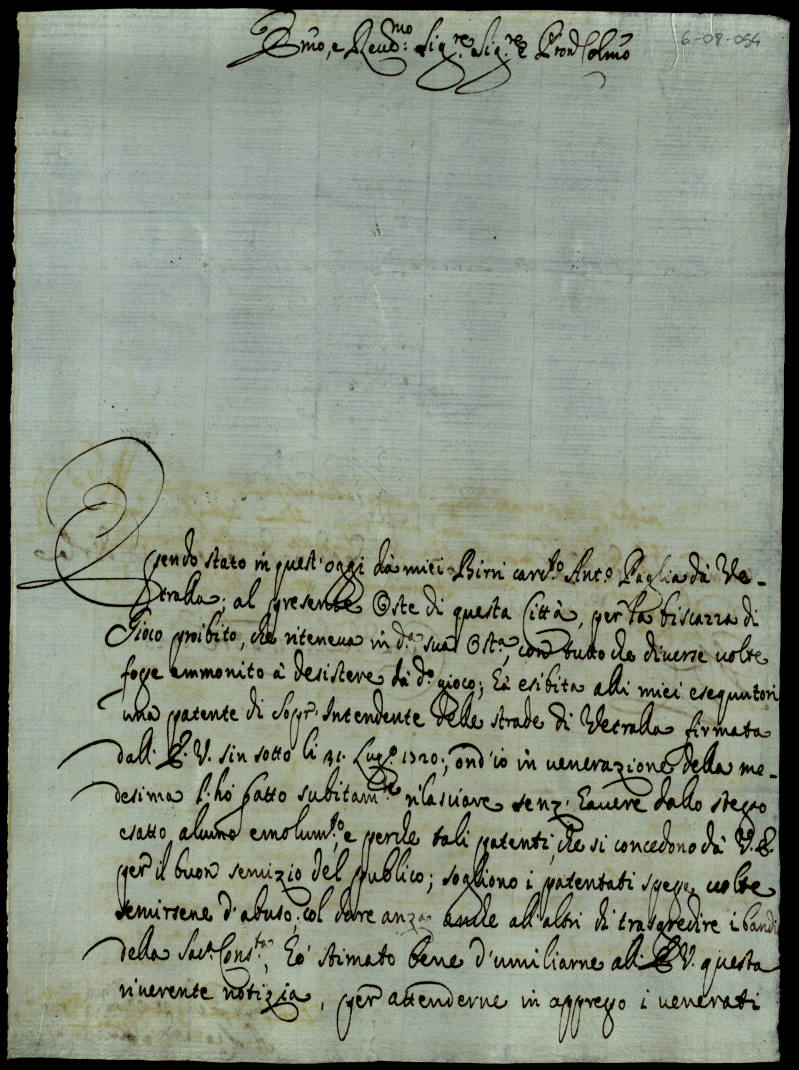 Em̃o, e Reud:mo Sig.re Sig.re e Pron Colm̃o
6-08-054
Esendo stato in quest'oggi dà miei Birri carc.to Ant.o Paglia dà Ve-
tralla, al presente Oste di questa Città, per la biscazza di
Gioco proibito, che riteneva in d.a sua Ost.a, con tutto che diverse volte
fosse ammonito à desistere dà d.o gioco; Hà esibita alli miei esequutori
una patente di Sopr'Intendente delle strade di Vetralla firmata
dall'E.V. sin sotto li 31. Lug.o 1720; ond'io in venerazione della me-
desima l'hò fatto subitam.te rilasciare senz'havere dallo stesso
esatto alcuno emolum.to, e perche tali patenti, che si concedono dà V.E.
per il buon servizio del publico; sogliono i patentati spesse volte
servirsene d'abuso, col dare anza anche all'altri di trasgredire i bandi
della Sac.a Cons.ta, Hò stimato bene d'umiliarne all'E.V. questa
riverente notizia, per attenderne in appresso i venerati